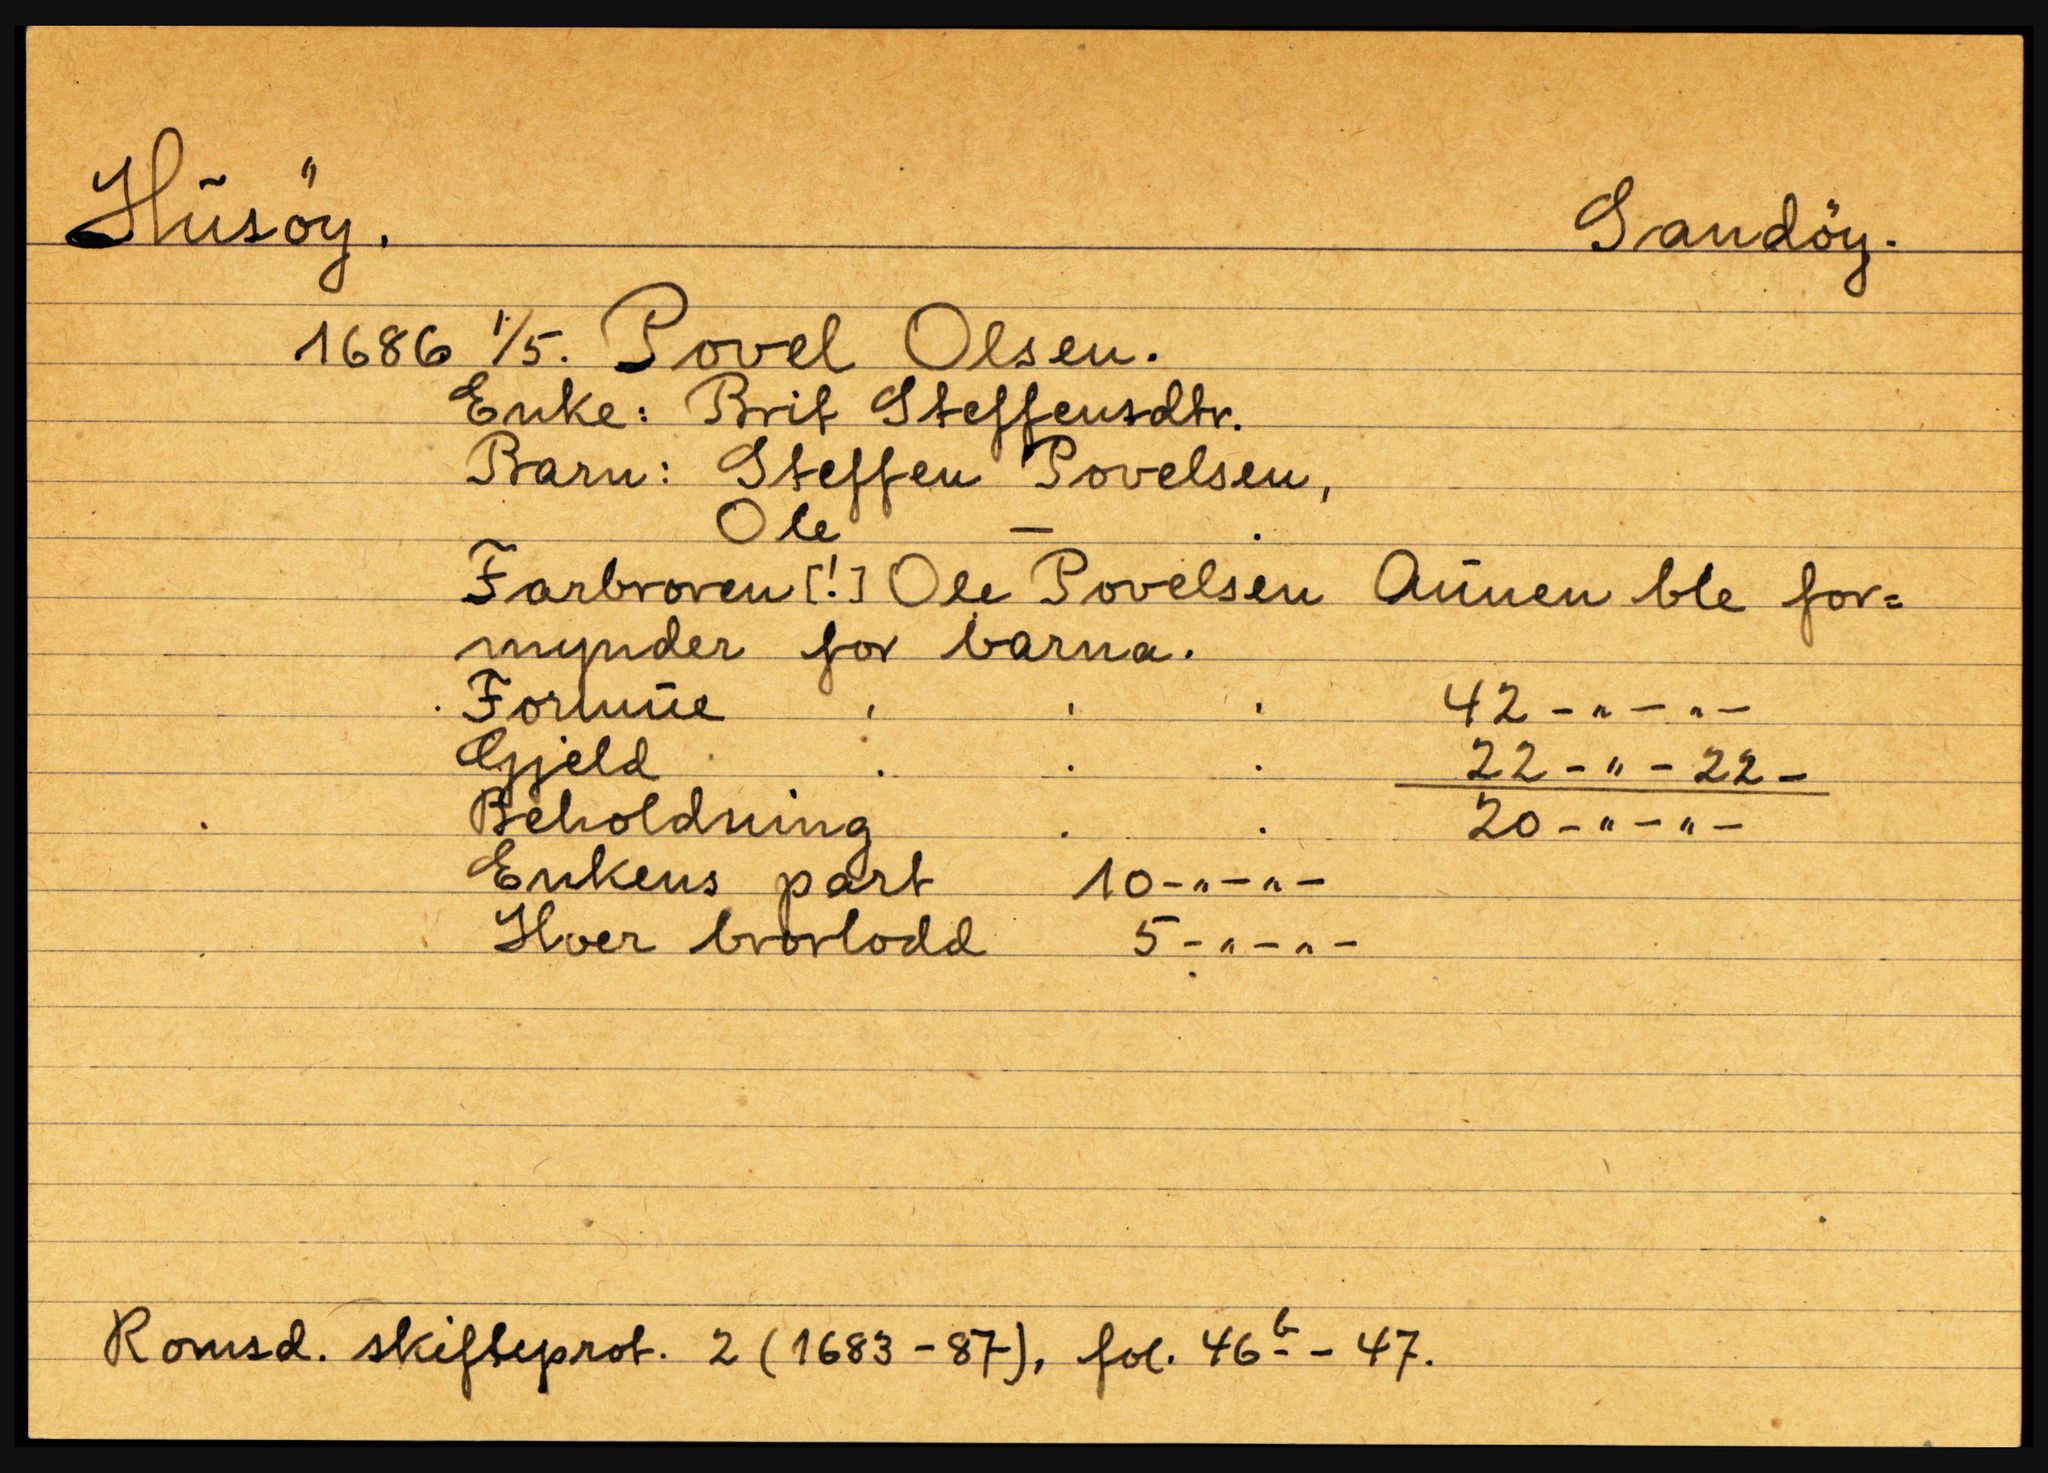 Husöy. Sandöy.
1686 1/5. Povel Olsen.
Enke: Brit Steffensdtr.
Barn: Steffen Povelsen,
Ole — .
Farbroren [!] Ole Povelsen Aunen ble for=
mynder for barna.
Formue . . . 42 - " - " -
Gjeld . . . 22 - " - 22 -
Beholdning . . 20 - " - " -
Enkens part 10 - " - " -
Hver brorlodd 5 - " - " -
Romsd. skifteprot. 2 (1683 - 87), fol. 46b - 47.